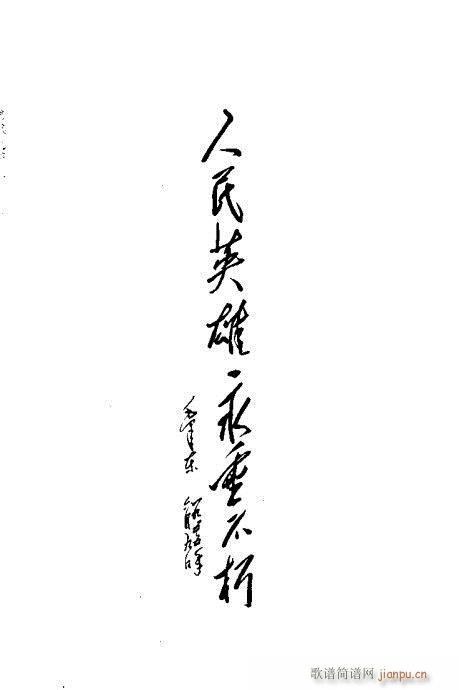 人民英雄永垂不朽
毛泽东
歌谱简谱网
jianpu.cn